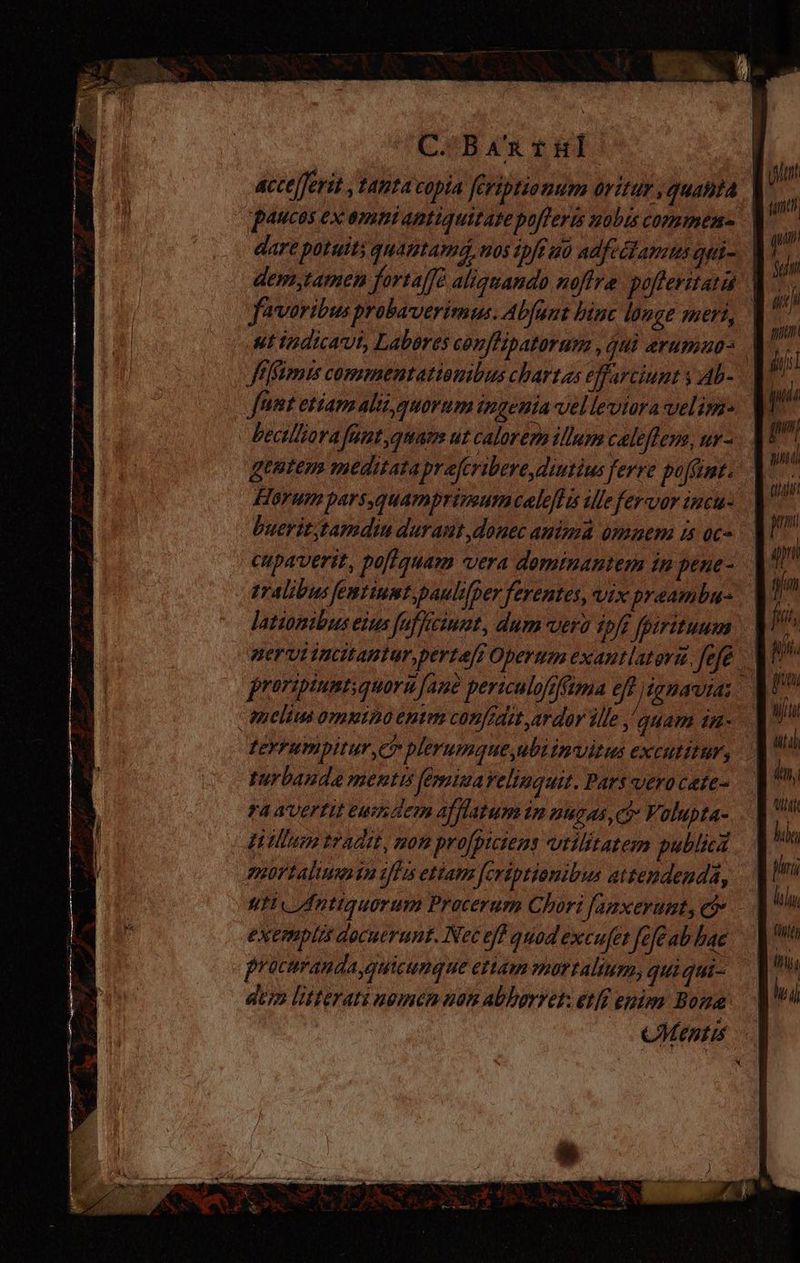 C. BARTHL
accesserit, tanta copia scriptionum oritur, quanta
paucos ex omni antiquitate posteris nobis commen-
dare potuit; quantamq́, nos ipsi nō adfectamus qui-
dem, tamen fortassè aliquando nostrae posteritatis
favoribus probaverimus. Absunt hinc longe meri,
ut indicavi, Labores constipatorum, qui aerumno-
sissimis commentationibus chartas effarciunt; Ab-
sunt etiam alii, quorum ingenia vel leviora vel im-
becilliora sunt, quam ut calorem illum caelestem, ur-
gentem meditata praescribere, diutius ferre possint.
Horum pars, quamprimum caelestis ille fervor incu-
buerit, tamdiu durant, donec animā omnem is oc-
cupaverit, postquam vera dominantem in pene-
tralibus sentiunt, paulisper ferentes, vix praeambu-
lationibus eius sufficiunt, dum vero ipsi spirituum
nervi incitantur, pertaesi Operum exantlatorū, sese
proripiunt; quorū sanè periculosissima est ignavia:
melius omnino enim consedit, ardor ille, quam in-
terrumpitur, & plerumque, ubi invitus excutitur,
turbandae mentis semina relinquit. Pars vero cate-
ra avertit eumdem afflatum in nugas, & Volupta-
ti illum tradit, non prospiciens utilitatem publicā
mortalium in istis etiam scriptionibus attendendā,
uti Antiquorum Procerum Chori sanxerunt, &
exemplis docuerunt. Nec est quod excuset sese ab hac
procuranda, quicunque etiam mortalium, qui qui-
dem litterati nomen non abhorret: etsi enim Bonae
Mentis